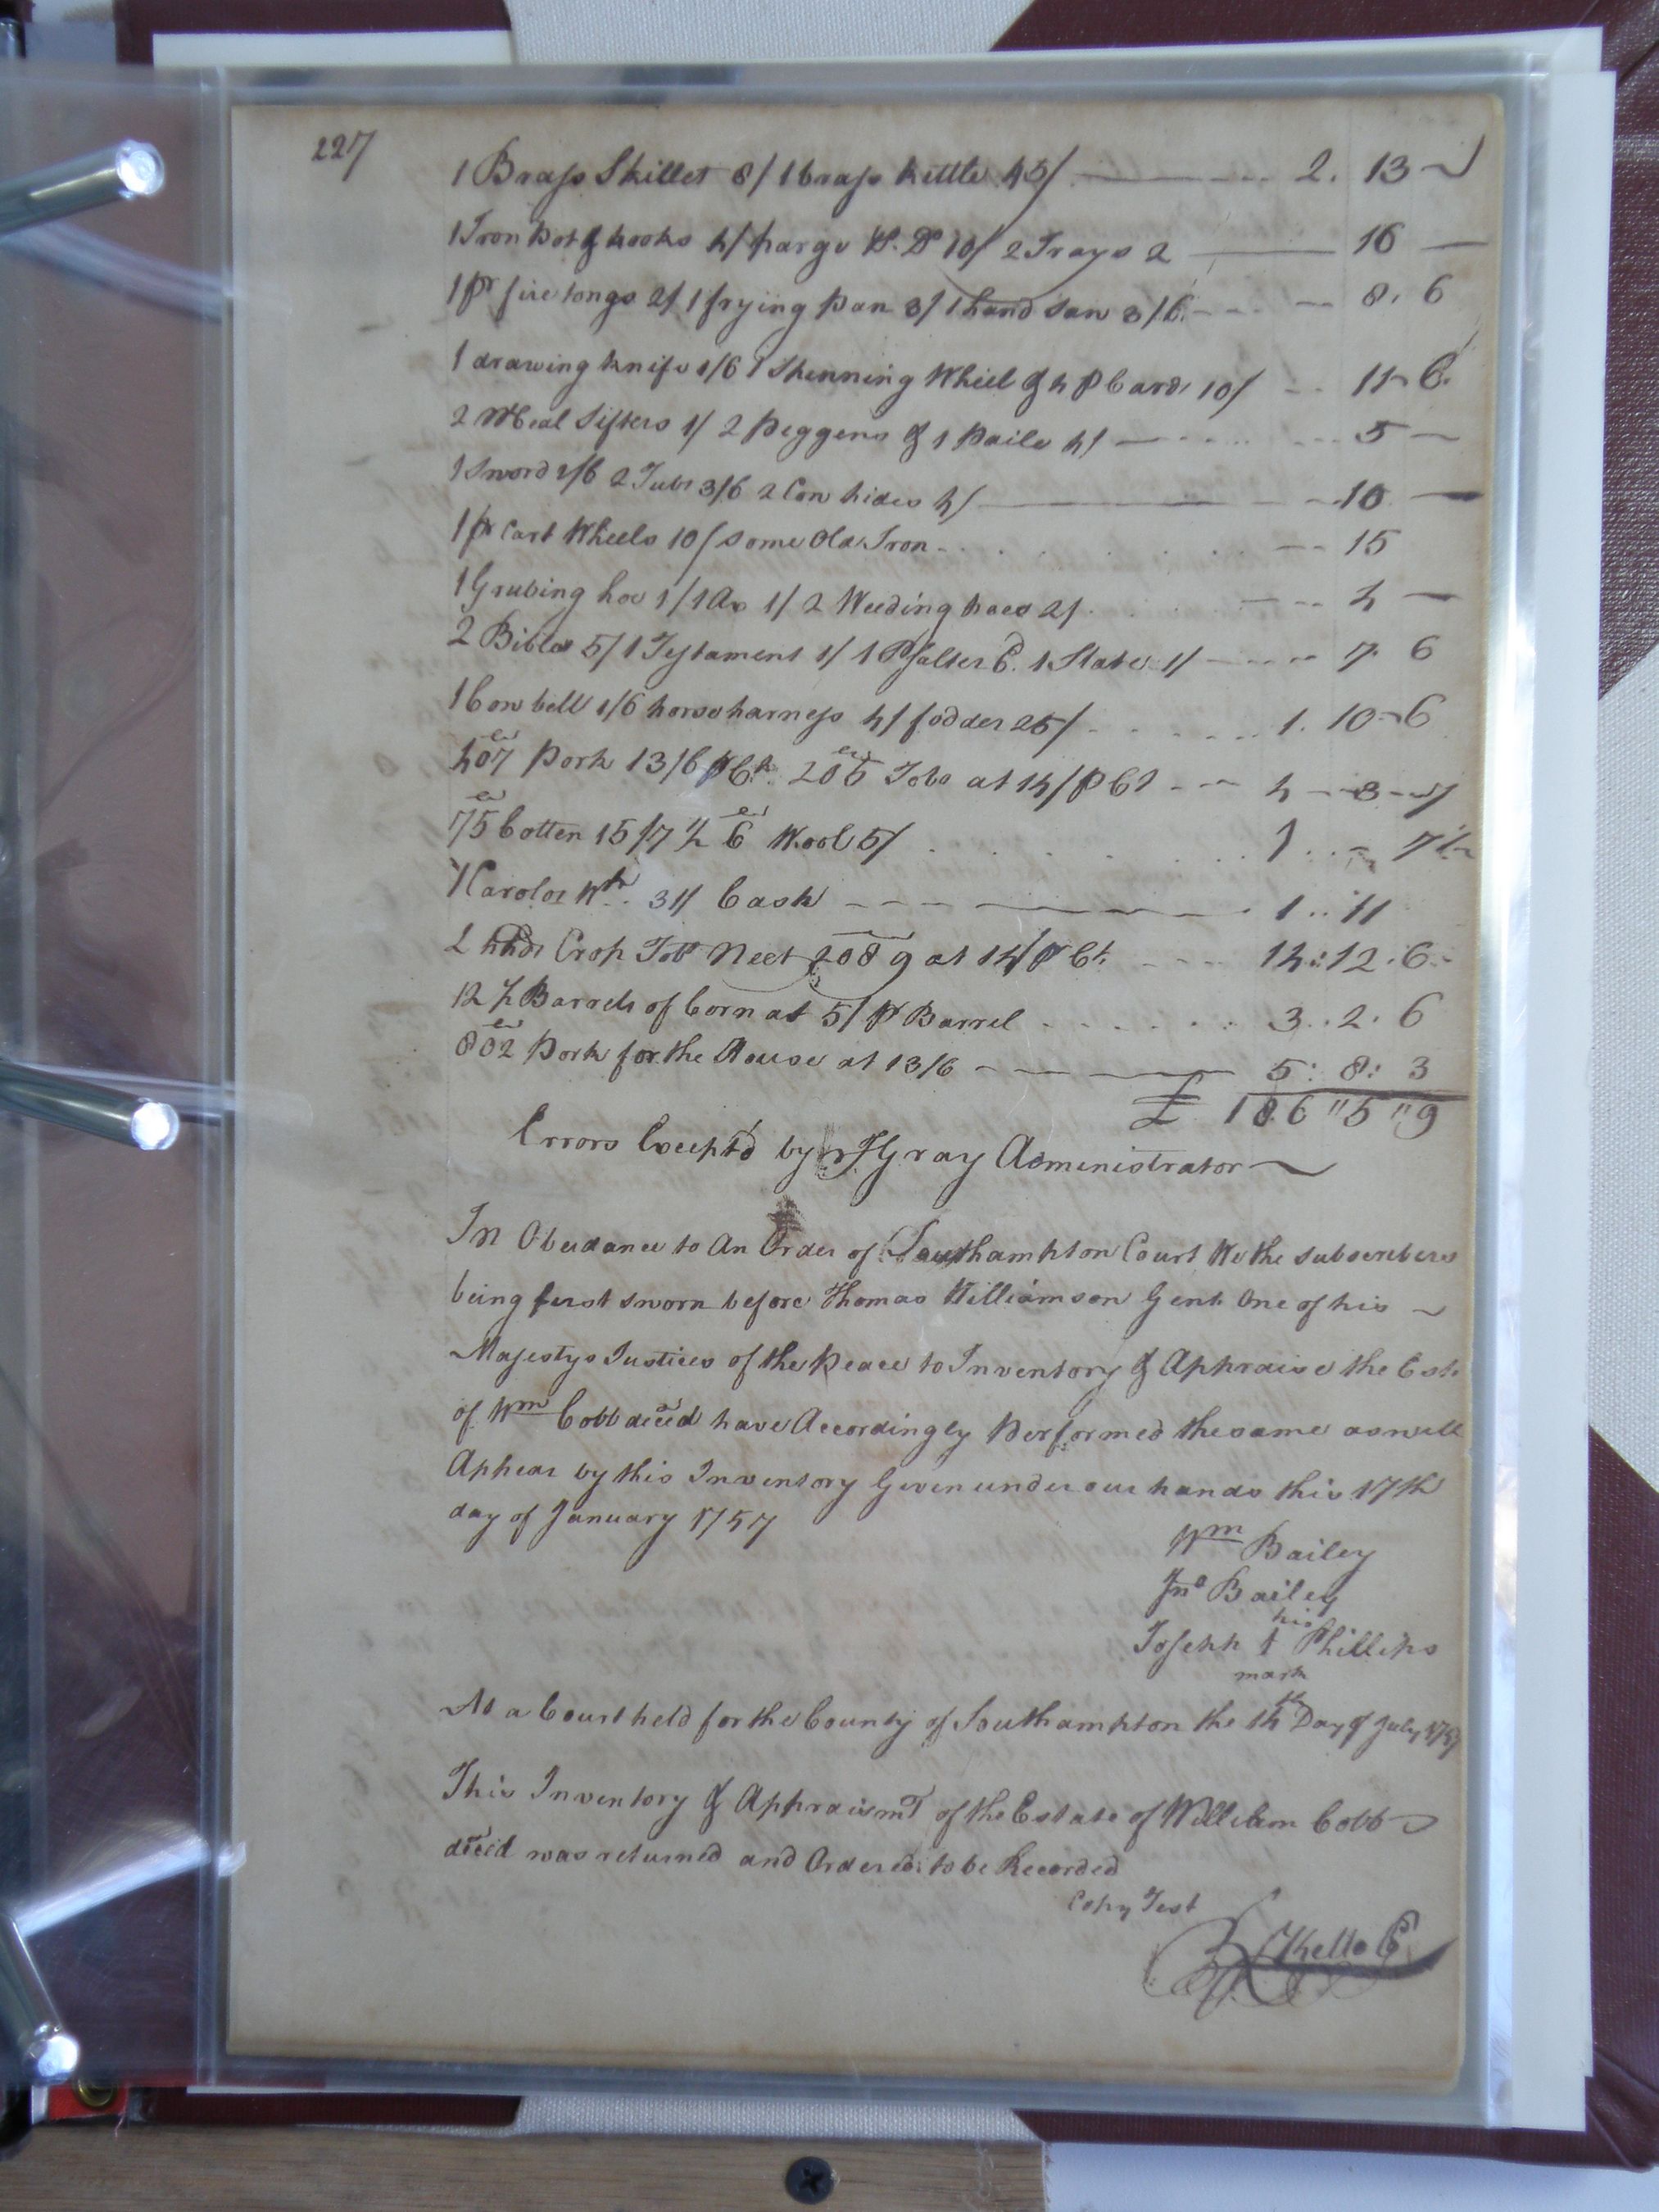 227
1 Brass Skillet 8/ 1 brass kettle 45/ 2. 13 -
1 Iron Pot & hooks 4/ parge Do Do 10/ 2 Trays 2 16 -
1 pr fire tongs 2/ 1 frying pan 3/ 1 hand saw 3/6 8. 6
1 drawing knife 1/6 1 Spenning Wheel & 4 P Cards 10/ 11 - 6
2 Meal Sifters 1/ 2 Peggens & 1 Paile 4/ 5 -
1 Sword 2/6 2 Tubs 3/6 2 Cow hides 4/ 10 -
1 pr Cart Wheels 10/ some Old Iron 15
1 Grubing hoe 1/ 1 Ax 1/ 2 Weeding hoes 2/ 4 -
2 Bibles 5/ 1 Testament 1/ 1 Psalter 6. 1 Slate 1/ 7. 6
1 Cow bell 1/6 horse harness 4/ fodder 25/ 1. 10 - 6
407 Pork 13/6 P Ct. 205 Tobo at 14/ P Ct 4 - 3 - 7
75 Cotten 15/7 1/2 6 Wool 5/ 1 .. - 7 1/2
Wt. 31/ Cash 1 .. 11
2 hhds Crop Tobo Neet 2089 at 14/ P Ct. 14 : 12 . 6
12 1/2 Barrels of Corn at 5/ P Barrel 3 . 2 . 6
802 Pork for the House at 13/6 5 : 8 : 3
£ 186 " 5 " 9
Errors Except'd by Gray Administrator
In Obeidance to An Order of Southampton Court We the subscribers
being first sworn before Thomas Williamson Gent. One of his
Majestys Justices of the Peace to Inventory & Appraise the Est.
of Wm Cobb deced have Accordingly Performed the same as will
Appear by this Inventory Given under our hands this 17th
day of January 1757
Wm Bailey
Jno Bailey
his
Joseph I Phillips
mark
At a Court held for the County of Southampton the 14th Day of July 1757
This Inventory & Appraismt of the Estate of William Cobb
deced was returned and Ordered to be Recorded
Copy Test
Kello